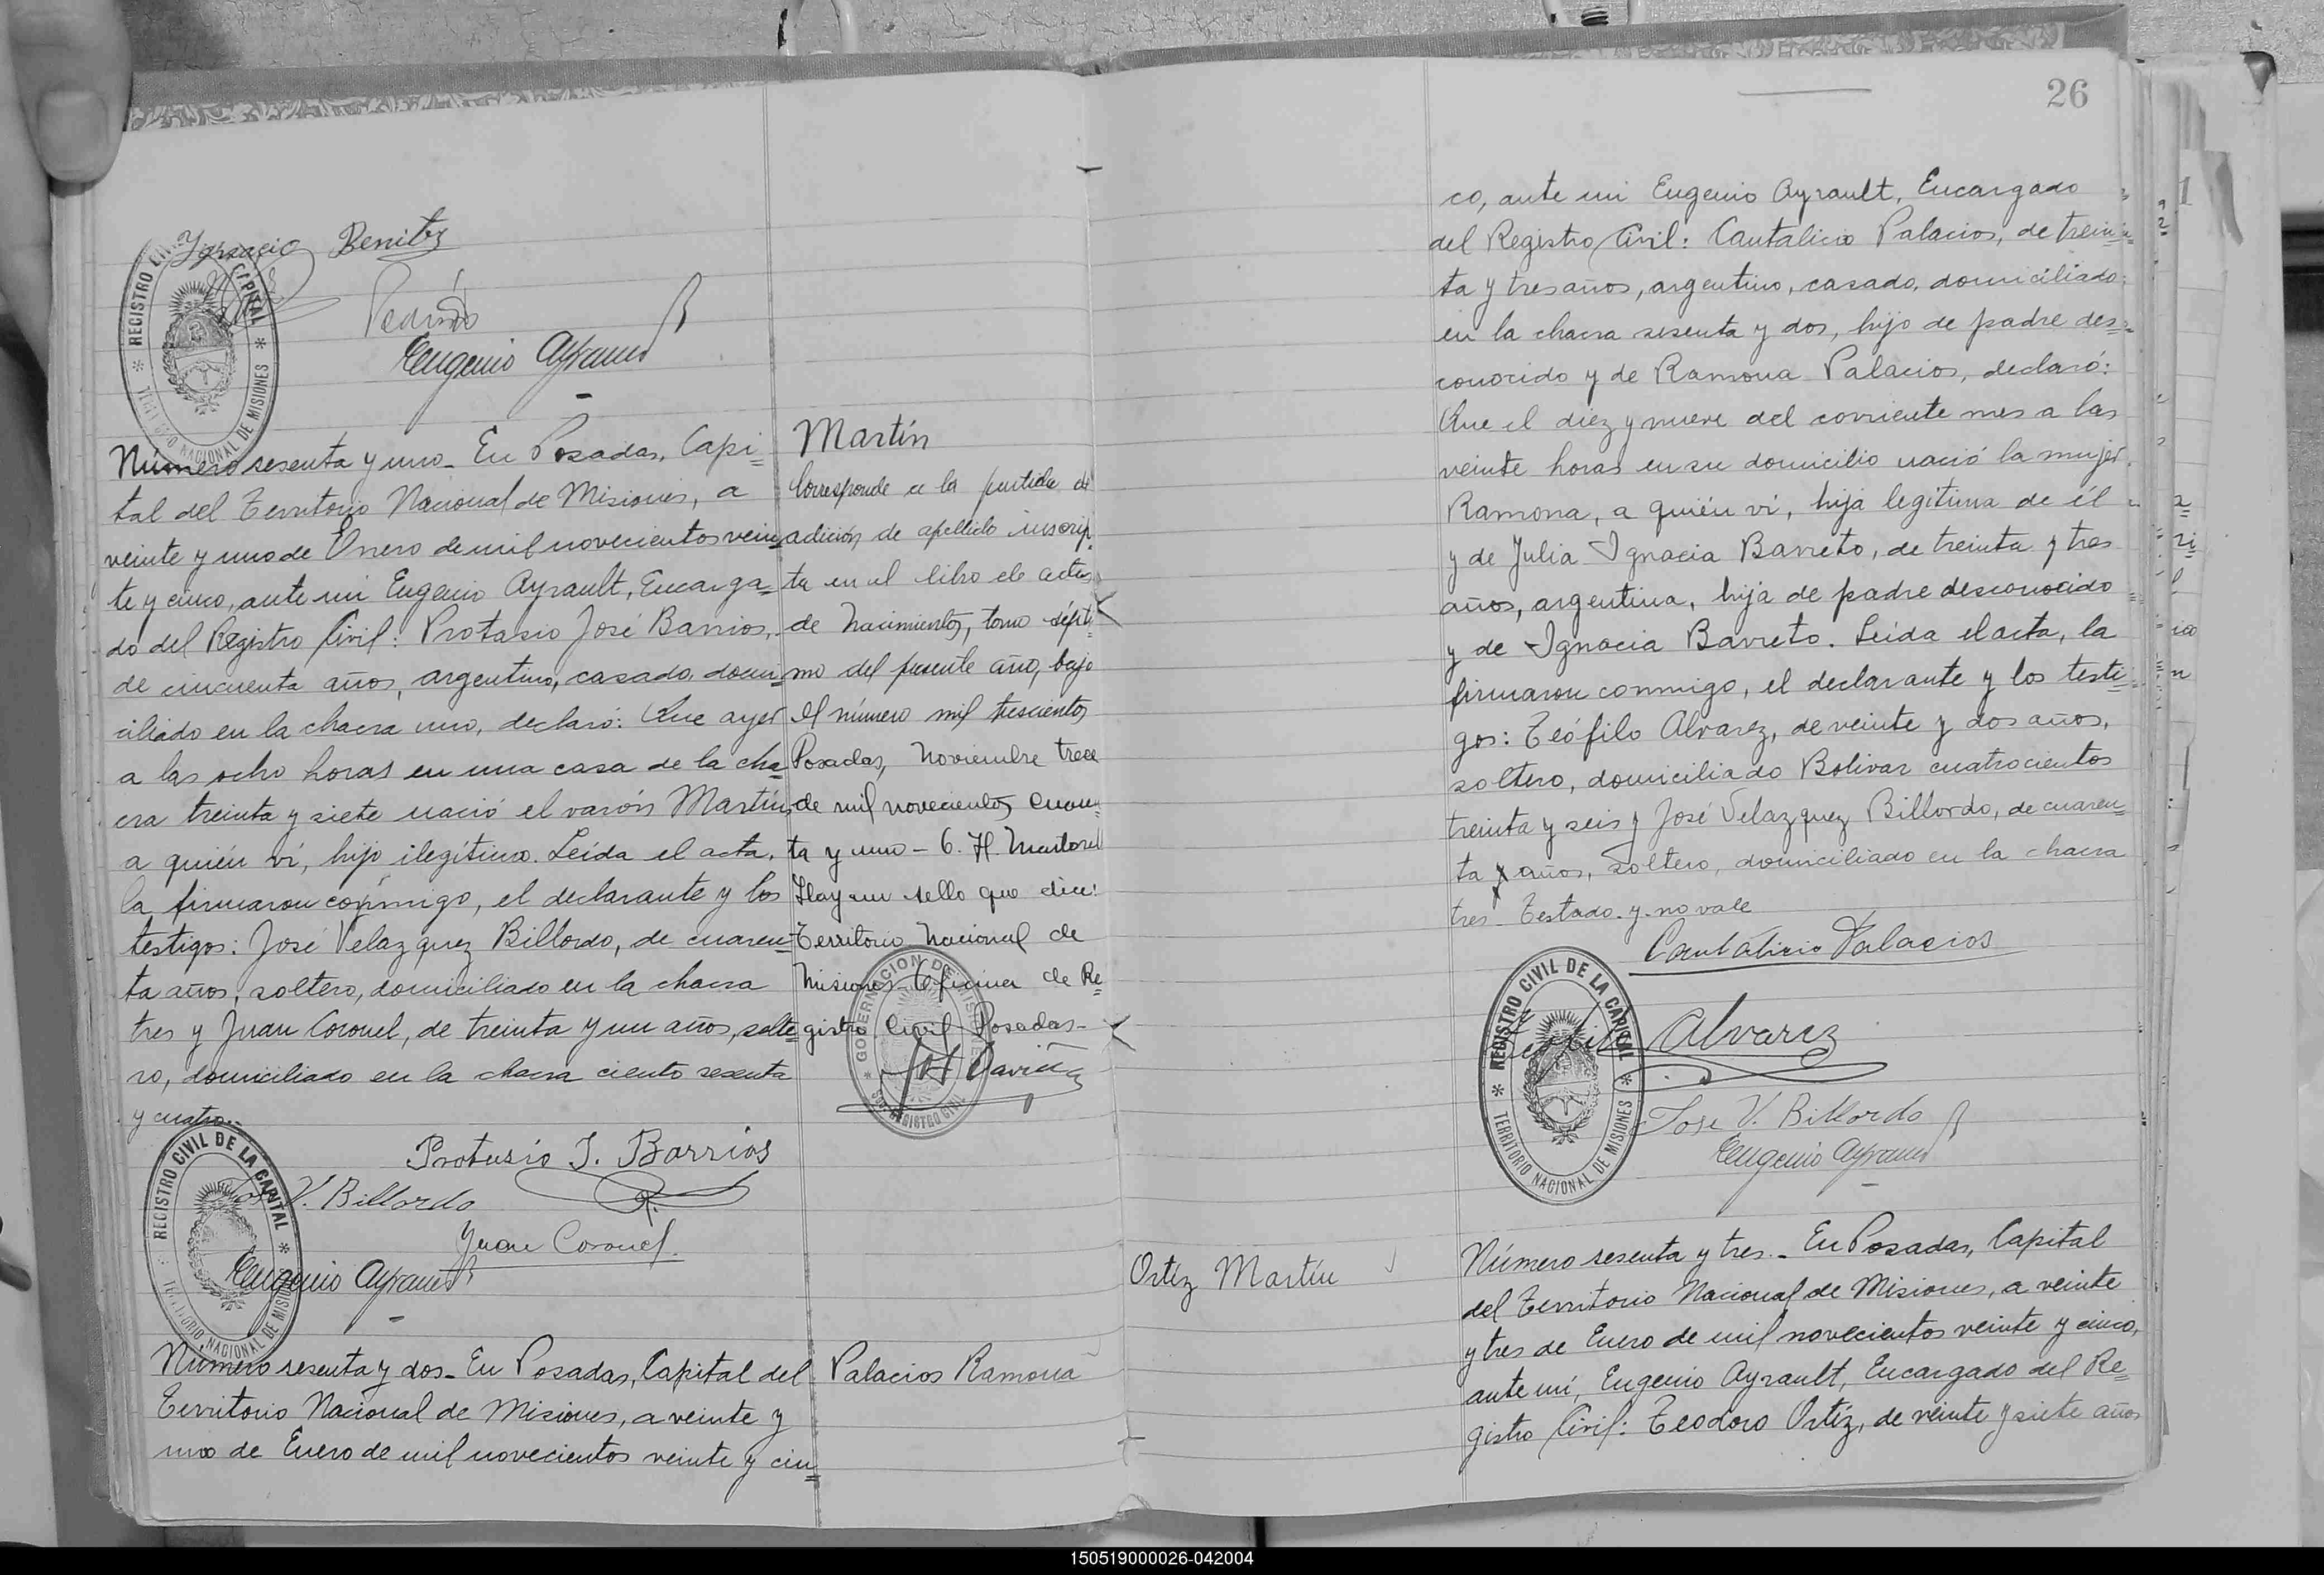 Ignacio Benitez
Eugenio Ayrault
REGISTRO CIVIL DE LA CAPITAL * TERRITORIO NACIONAL DE MISIONES *
Número sesenta y uno_ En Posadas, Capi=
tal del Territorio Nacional de Misiones, a
veinte y uno de Enero de mil novecientos vein=
te y cinco, ante mi Eugenio Ayrault, Encarga=
do del Registro Civil: Protasio José Barrios,
de cincuenta años, argentino, casado, domi=
ciliado en la chacra uno, declaró: Que ayer
a las ocho horas en una casa de la cha=
cra treinta y siete nació el varón Martín,
a quién ví, hijo ilegítimo. Leida el acta,
la firmaron conmigo, el declarante y los
testigos: José Velazquez Billordo, de cuaren=
ta años, soltero, domiciliado en la chacra
tres y Juan Coronel, de treinta y un años, solte=
ro, domiciliado en la chacra ciento sesenta
y cuatro.-
Protasio J. Barrios
Jose V. Billordo
Juan Coronel
Eugenio Ayrault
REGISTRO CIVIL DE LA CAPITAL * TERRITORIO NACIONAL DE MISIONES *
Número sesenta y dos_ En Posadas, Capital del
Territorio Nacional de Misiones, a veinte y
uno de Enero de mil novecientos veinte y cin=
Martín
Corresponde a la partida de
adición de apellido inscrip
ta en el libro de actas
de Nacimientos, tomo sépti
mo del presente año, bajo
el número mil trescientos
Posadas, Noviembre trece
de mil novecientos cuaren
ta y uno - G. H. Martorell
Hay un sello que dice:
Territorio Nacional de
Misiones - Oficina de Re=
gistro Civil Posadas-
GOBERNACION DE MISIONES
REGISTRO CIVIL
Palacios Ramona
26
co, ante mi Eugenio Ayrault, Encargado
del Registro Civil: Cantalicio Palacios, de trein=
ta y tres años, argentino, casado, domiciliado
en la chacra sesenta y dos, hijo de padre des=
conocido y de Ramona Palacios, declaró:
Que el diez y nueve del corriente mes a las
veinte horas en su domicilio nació la mujer
Ramona, a quién ví, hija legítima de él
y de Julia Ignacia Barreto, de treinta y tres
años, argentina, hija de padre desconocido
y de Ignacia Barreto. Leida el acta, la
firmaron conmigo, el declarante y los testi=
gos: Teófilo Alvarez, de veinte y dos años,
soltero, domiciliado Bolivar cuatrocientos
treinta y seis y José Velazquez Billordo, de cuaren=
ta y años, soltero, domiciliado en la chacra
tres_ Testado_y_no vale
Cantalicio Palacios
Teofilo Alvarez
Jose V. Billordo
Eugenio Ayrault
REGISTRO CIVIL DE LA CAPITAL * TERRITORIO NACIONAL DE MISIONES *
Ortíz Martín
Número sesenta y tres._ En Posadas, Capital
del Territorio Nacional de Misiones, a veinte
y tres de Enero de mil novecientos veinte y cinco,
ante mí, Eugenio Ayrault, Encargado del Re=
gistro Civil: Teodoro Ortíz, de veinte y siete años
150519000026-042004